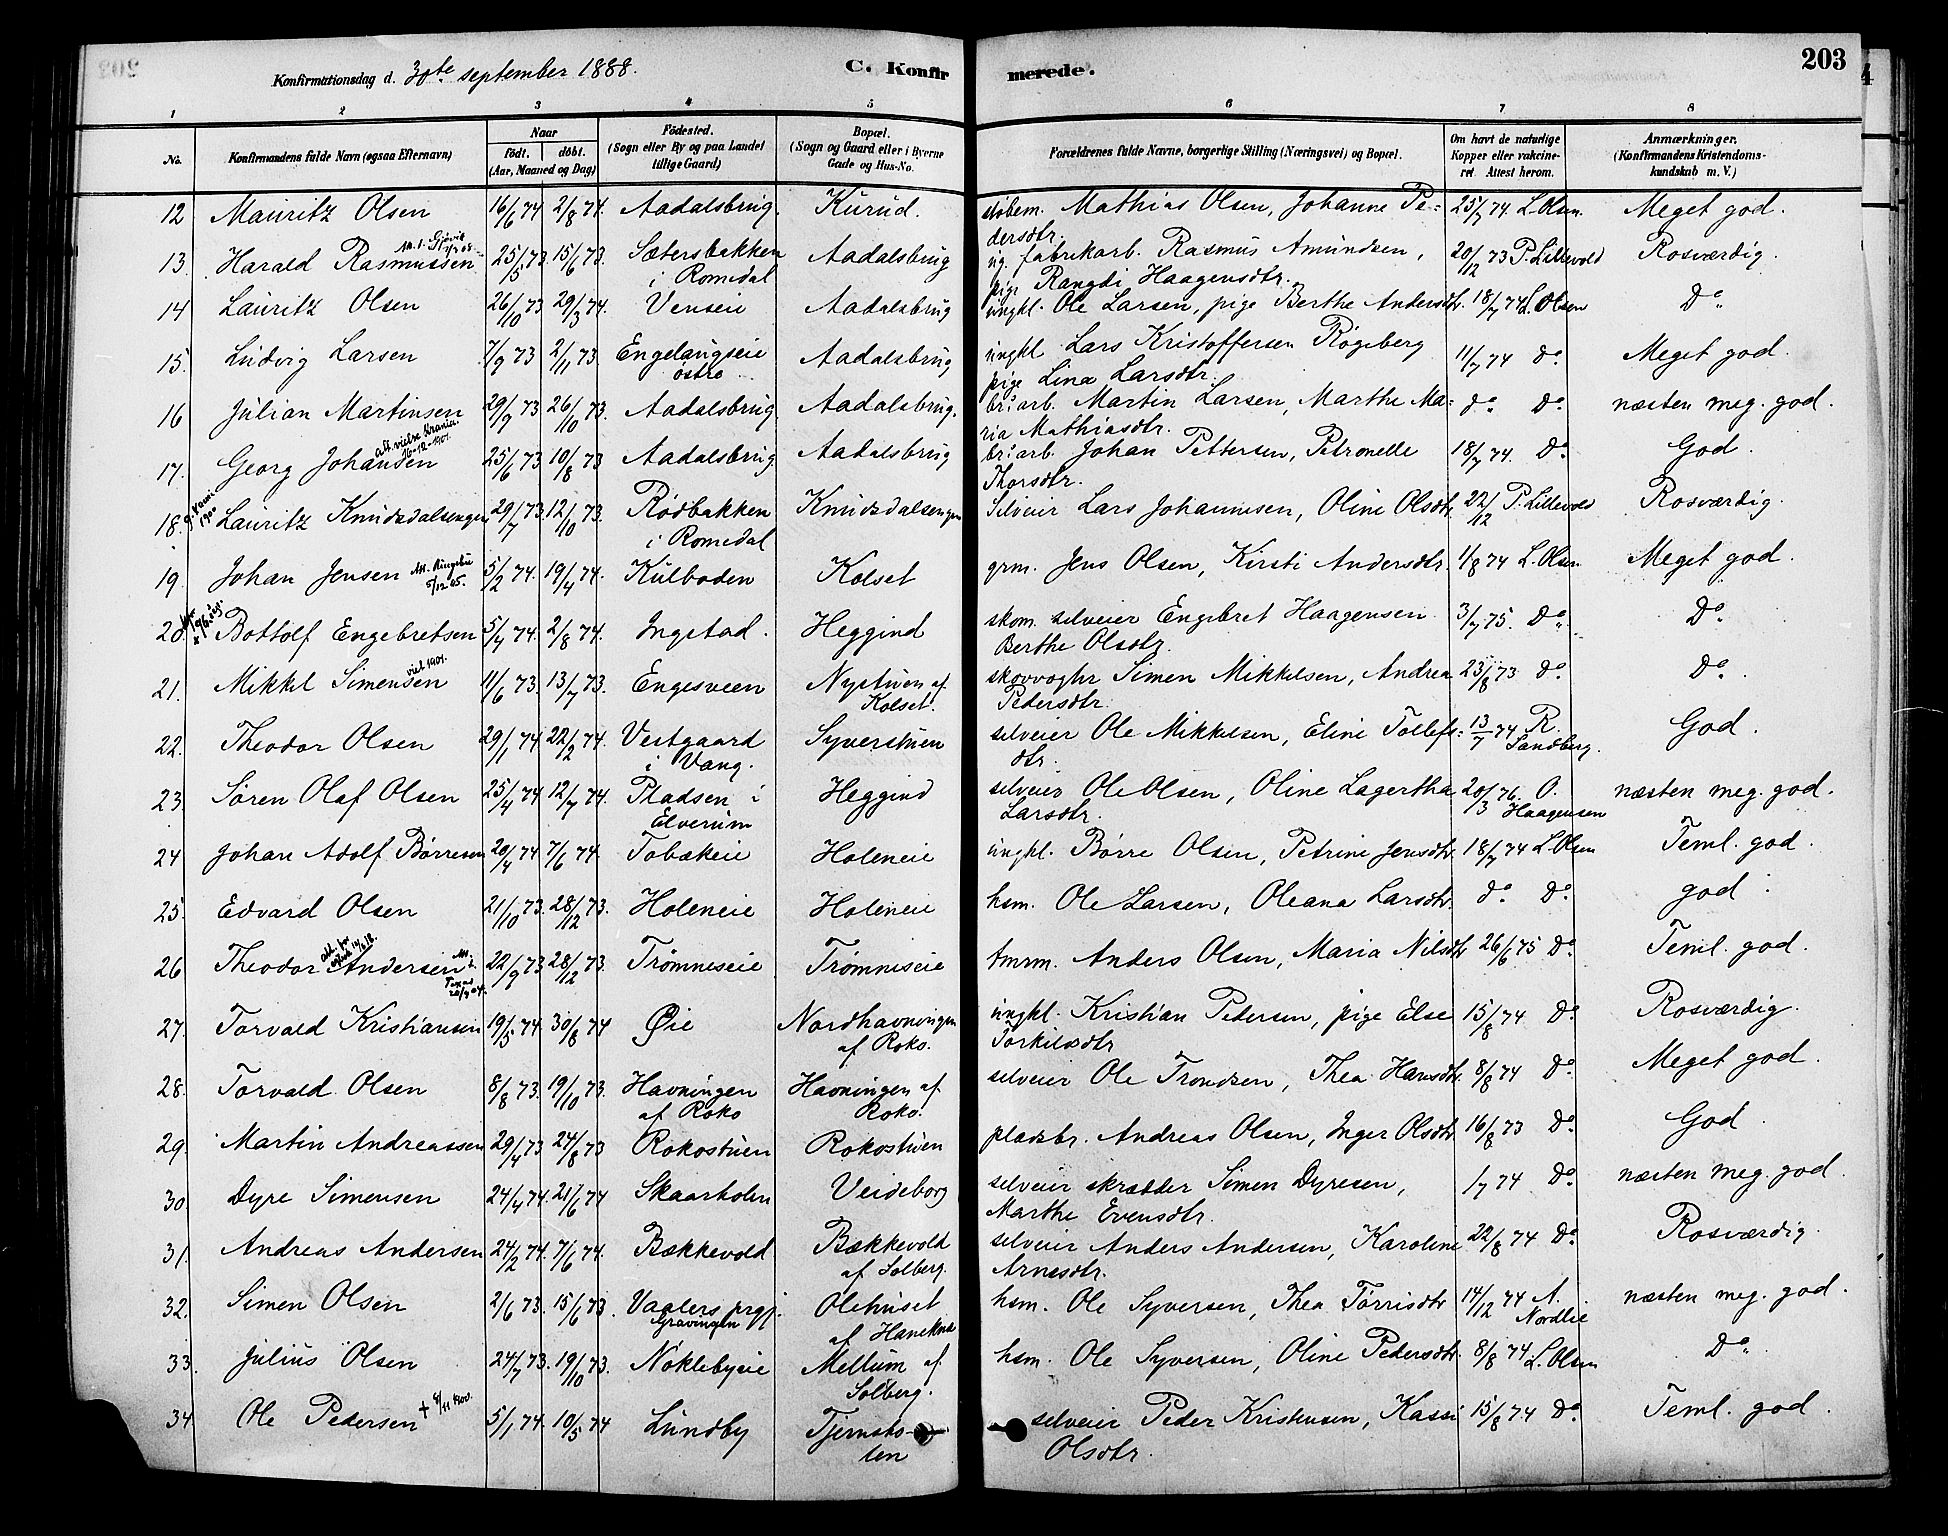 203
Konfirmationsdag d. 30te september 1888. C. Konfirmerede.
1 2 3 4 5 6 7 8
No. Konfirmandens fulde Navn (ogsaa Efternavn) Naar født. døbt. (Aar, Maaned og Dag) Fødested. (Sogn eller By og paa Landet tillige Gaard) Bopæl. (Sogn og Gaard eller i Byerne Gade og Hus-No. Forældrenes fulde Navne, borgerlige Stilling (Næringsvei) og Bopæl. Om havt de naturlige Kopper eller vakcineret. Attest herom. Anmærkninger. (Konfirmandens Kristendomskundskab m. V.)
12 Mauritz Olsen 16/6 74 2/8 74. Aadalsbrug. Kurud. Mathias Olsen, Johanne Pedersdtr. 25/7 74. L. Olsen Meget god.
13. Harald Rasmussen 25/5 73. 15/6 73. Sætersbakken i Romedal Aadalsbrug ug. fabrikarb. Rasmus Amundsen, pige Rangdi Haagensdtr. 20/12 73 P. Lillevold Rosværdig.
14 Lauritz Olsen 26/10 73 29/3 74. Venseie Aadalsbrug ungkl. Ole Larsen, pige Berthe Andersdtr. 18/7 74 L. Olsen Do
15. Ludvig Larsen 7/9 73 2/11 73 Engelaugseie østre Aadalsbrug ungkl Lars Kristoffersen Røgeberg pige Lina Larsdtr. 11/7 74 do. Meget god.
16 Julian Martinsen 29/9 73 26/10 73. Aadalsbrug. Aadalsbrug. br: arb. Martin Larsen, Marthe Maria Mathiasdtr. do. Do. næsten meg. god.
17. Georg Johansen att. vielse Krania. 16-12-1901. 25/6 73 10/8 73 Aadalsbrug. Aadalsbrug br: arb. Johan Pettersen, Petronelle Thorsdtr. 18/7 74. Do. God.
18. Lauritz Knudsdalsengen 29/7 73. 12/10 73. Rødbakken i Romedal Knudsdalsengen Selveier Lars Johannesen, Oline Olsdtr. 22/12 P. Lillevold Rosværdig
19. Johan Jensen Att. Ringebu 5/12 05. 5/2 74. 19/4 74. Kulboden Kolset grm. Jens Olsen, Kirsti Andersdtr. 1/8 74 L. Olsen Meget god.
20. Bottolf Engebretsen 5/4 74. 2/8 74. Ingstad. Heggind skom. selveier Engebret Haagensen Berthe Olsdtr. 3/7 75. Do. Do
21. Mikkel Simensen viet 1901. 11/6 73. 13/7 73. Engesveen Nystuen af Kolset. skovvogtr Simen Mikkelsen, Andrea Pedersdtr. 23/8 73 do. Do.
22. Theodor Olsen 29/1 74. 22/2 74. Vestgaard i Vang. Syverstuen selveier Ole Mikkelsen, Eline Tollefsdtr. 13/7 74 R. Sandberg. God.
23. Søren Olaf Olsen 25/4 74. 12/7 74. Pladsen i Elverum Heggind selveier Ole Olsen, Oline Lagertha Larsdtr. 20/3 76. O. Haagensen næsten meg. god.
24 Johan Adolf Børresen 20/4 74 7/6 74. Tobækeie Holeneie ungkl. Børre Olsen, Petrine Jensdtr. 18/7 74 L. Olsen Teml. god.
25. Edvard Olsen 21/10 73. 28/12 73. Holeneie Holeneie hsm. Ole Larsen, Oleana Larsdtr. do. Do. god
26 Theodor Andersen Texas 22/9 73 28/12 73. Trømneseie Trømneseie tmrm. Anders Olsen, Maria Nilsdtr 26/6 75 Do Teml. god.
27. Torvald Kristiansen 19/5 74 30/8 74 Øie Nordhavningen af Roko. ungkl. Kristian Pedersen, pige Else Torkilsdtr 15/8 74 Do. Rosværdig.
28. Torvald Olsen 8/8 73. 19/10 73. Havningen af Roko Havningen af Roko. selveier Ole Trondsen, Thea Hansdtr. 8/8 74 Do. Meget god.
29. Martin Andreassen 29/4 73 24/8 73 Rokostuen Rokostuen pladsbr. Andreas Olsen, Inger Olsdtr 16/8 73 Do. God.
30. Dyre Simensen 24/4 74. 21/6 74 Skaarholen Veideborg selveier skrædder Simen Dyresen, Marthe Evensdtr. 1/7 74 Do. næsten meg. god.
31. Andreas Andersen 24/2 74. 7/6 74. Bækkevold Bækkevold af Solberg. selveier Anders Andersen, Karoline Arnesdtr. 22/8 74 Do. Rosværdig
32. Simen Olsen 2/6 73. 15/6 73. Vaalers prgj. Gravingen Olehuset af Hanekne hsm. Ole Syversen, Thea Tørrisdtr 14/12 74 A. Nordlie næsten meg. god.
33. Julius Olsen 24/7 73. 19/10 73. Nøklebyeie Mellum af Solberg. hsm. Ole Syversen, Oline Pedersdtr. 8/8 74. L. Olsen Do.
34 Ole Pedersen + 5/1 74. 10/5 74 Lundby Tjernsholten selveier Peder Kristensen, Kassi Olsdtr. 15/8 74 Do. Teml. god.